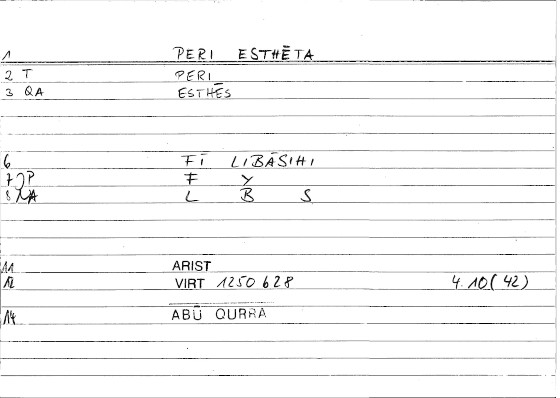 1 PERI ESTHĒTA
2 T PERI
3 QA ESTHĒS
6 FĪ LIBĀSIHI
7 JP F Y
8 NA L B S
11 ARIST
12 VIRT 1250 b 28 4.10(42)
14 ABŪ QURRA